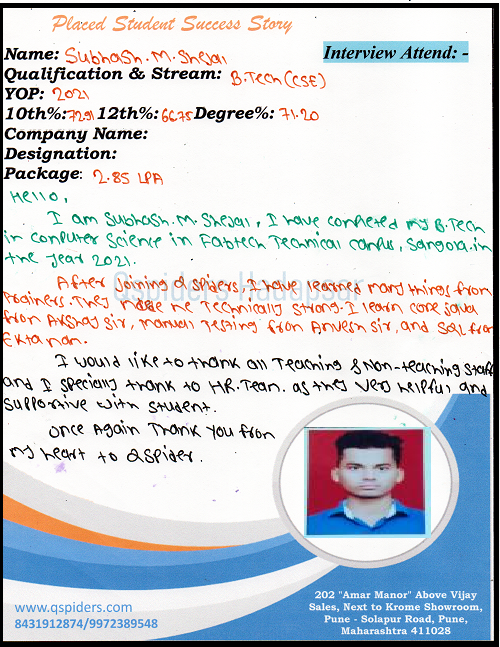 Placed Student Success Story
Name: Subhash. M. Shejal
Interview Attend: -
Qualification & Stream: B.Tech (CSE)
YOP: 2021
10th%: 72.91 12th%: 66.75 Degree%: 71.20
Company Name:
Designation:
Package: 2.85 LPA
Hello,
I am Subhash. M. Shejal, I have completed my B.Tech
in computer Science in Fabtech Technical campus, Sangola. in
the year 2021.
After Joining Qspiders, I have learned many things from
trainers. They made me Technically strong. I learn core Java
from Akshay sir, manual Testing from Anvesh sir, and SQL from
Ekta mam.
Qspiders Hadapsar
I would like to thank all Teaching & Non-teaching Staff
and I specially thank to HR. Team. as they very helpful and
supportive with student.
Once Again Thank You from
my heart to QSpider.
www.qspiders.com
8431912874/9972389548
202 "Amar Manor" Above Vijay
Sales, Next to Krome Showroom,
Pune - Solapur Road, Pune,
Maharashtra 411028